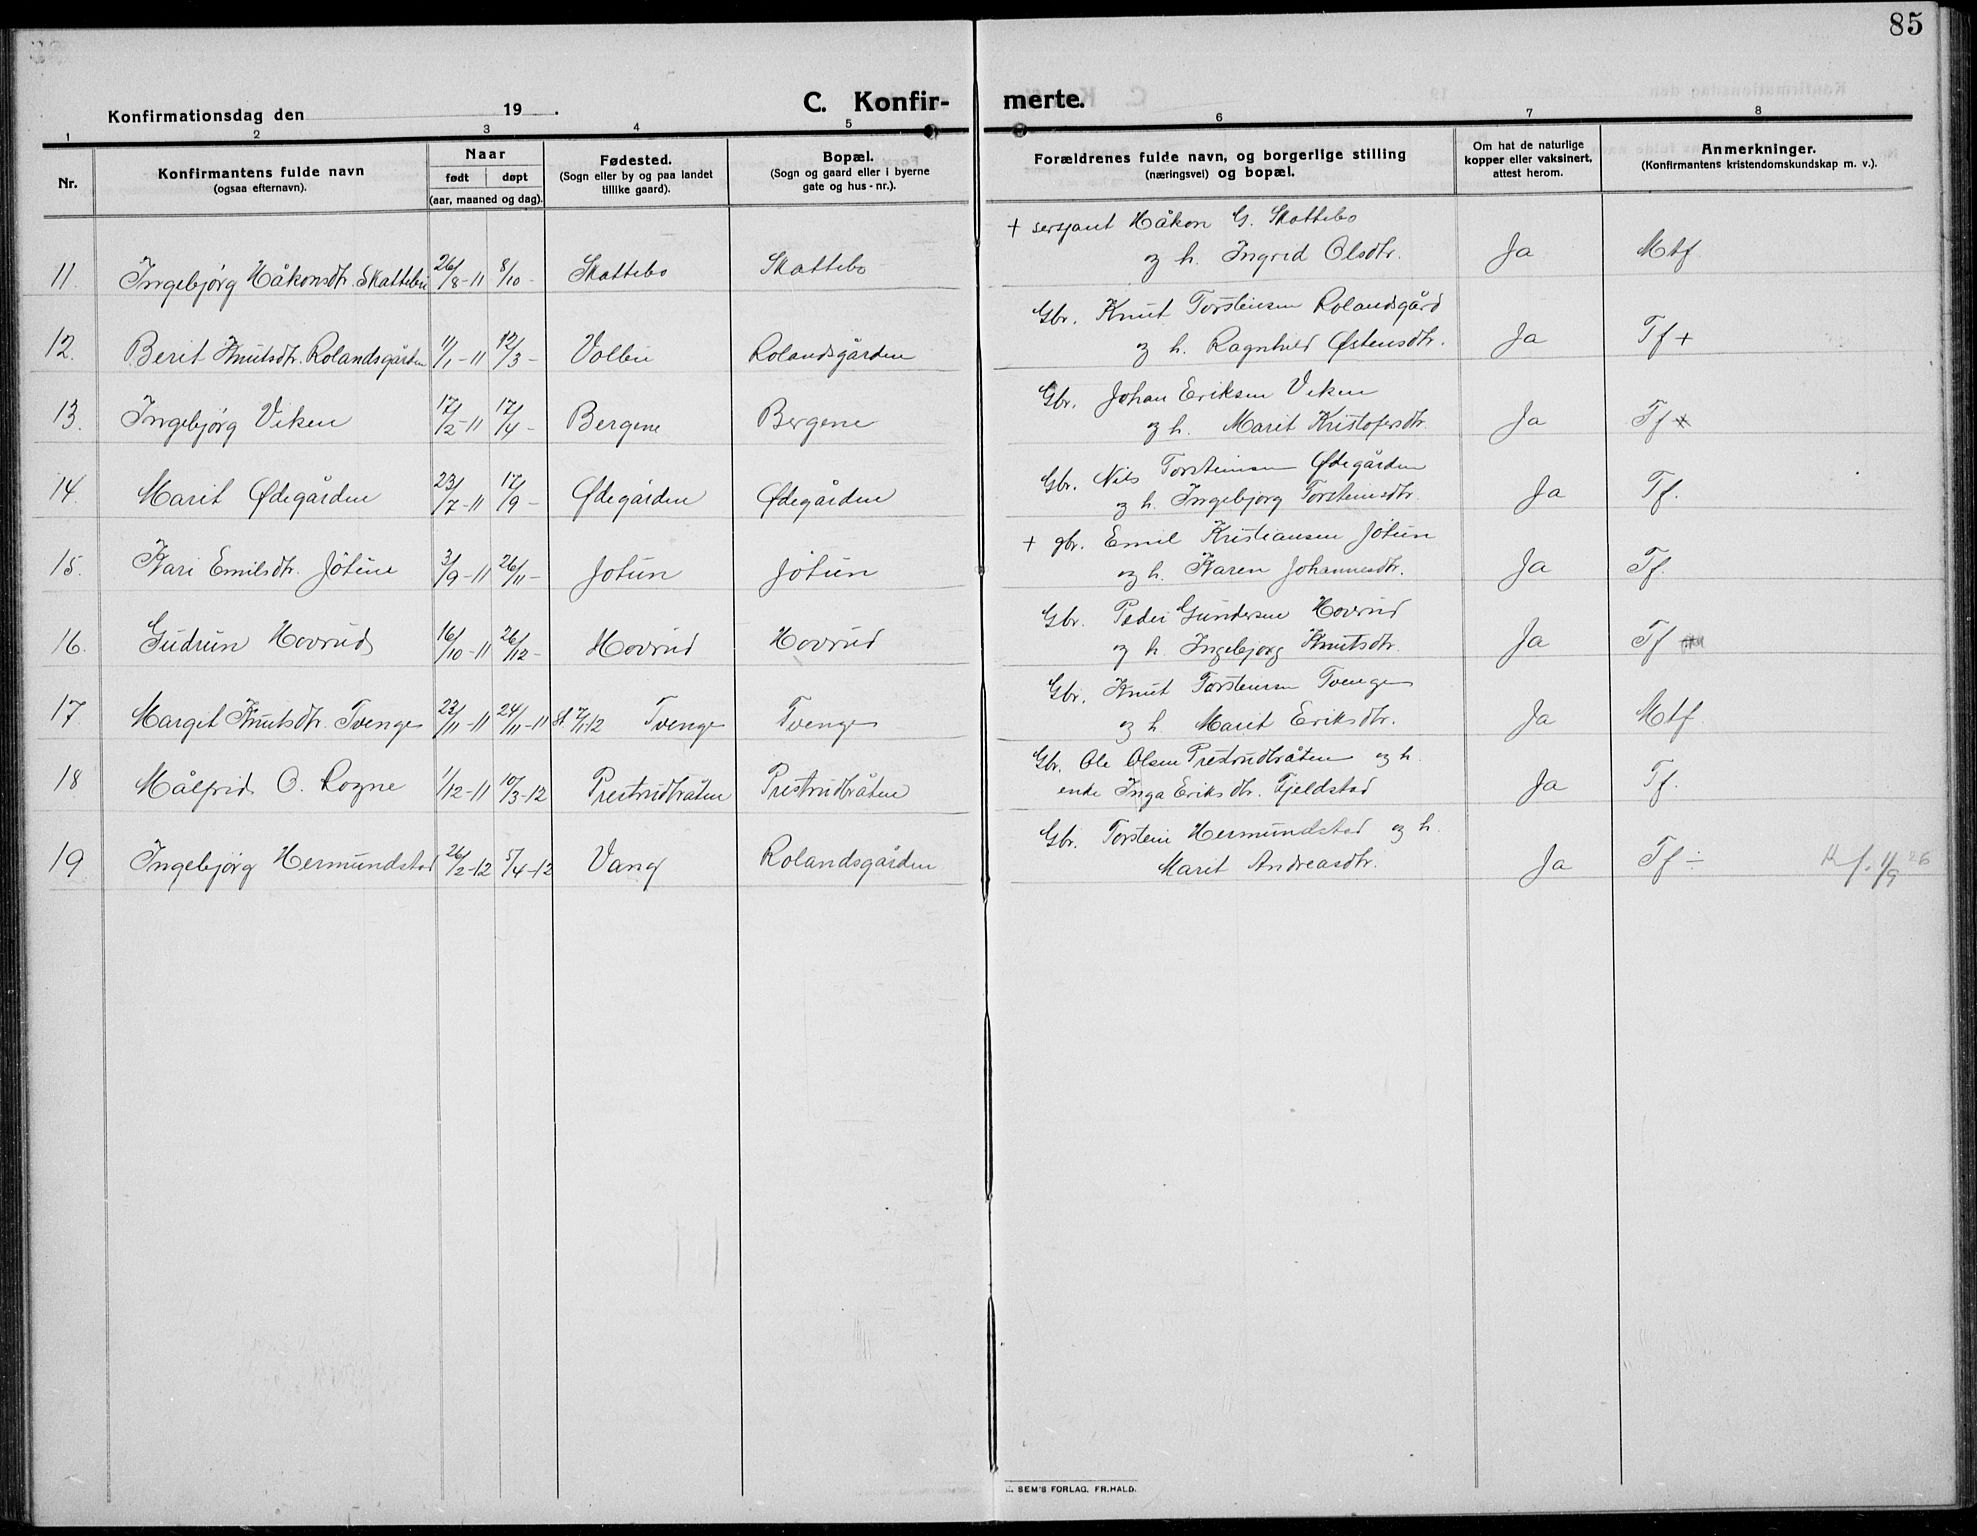 85
Konfirmationsdag den 19 .
C. Konfir- merte.
1 2 3 4 5 6 7 8
Nr.
Konfirmantens fulde navn
(ogsaa efternavn).
Naar
født døpt
(aar, maaned og dag).
Fødested.
(Sogn eller by og paa landet
tillike gaard).
Bopæl.
(Sogn og gaard eller i byerne
gate og hus-nr.).
Forældrenes fulde navn, og borgerlige stilling
(næringsvei) og bopæl.
Om hat de naturlige
kopper eller vaksinert,
attest herom.
Anmerkninger.
(Konfirmantens kristendomskundskap m. v.).
+ sersjant Håkon G. Skattebo
11. Ingebjørg Håkonsdtr. Skattebu 26/8-11 8/10- Skattebo Skattebo og h. Ingrid Olsdtr. Ja Mtf
Gbr. Knut Torsteinsen Rolandsgård
12. Berit Knutsdtr. Rolandsgården 11/1-11 12/3- Volbu Rolandsgården og h. Ragnhild Østensdtr. Ja Tf +
Gbr. Johan Eriksen Viken
13. Ingebjørg Viken 17/2-11 17/4- Bergene Bergene og h. Marit Kristofersdtr. Ja Tf
Gbr. Nils Torsteinsen Ødegården
14. Marit Ødegården 23/7-11 17/9- Ødegården Ødegården og h. Ingebjørg Torsteinsdtr. Ja Tf.
+ gbr. Emil Kristiansen Jotun
15. Kari Emilsdtr. Jotun 3/9-11 26/11- Jotun Jotun og h. Karen Johannesdtr. Ja Tf.
Gbr. Peder Gundersen Hovrud
16. Gudrun Hovrud 16/10-11 26/12- Hovrud Hovrud og h. Ingebjørg Knutsdtr. Ja Tf
Gbr. Knut Torsteinsen Tvenge
17. Margit Knutsdtr. Tvenge 23/11-11 24/11-11 st 7/1-12 Tvenge Tvenge og h. Marit Eriksdtr. Ja Mtf.
Gbr. Ole Olsen Prestrudbråten og h.
18 Målfrid O. Rogne 1/12-11 10/3-12 Prestrudbråten Prestrudbråten enke Inga Eriksdtr. Fjeldstad Ja Tf.
Gbr. Torstein Hermundstad og h.
19 Ingebjørg Hermundstad 26/2-12 5/4-12 Vang Rolandsgården Marit Andreasdtr. Ja Tf ÷ 11/9 26
SEM'S FORLAG. FR. HALD.